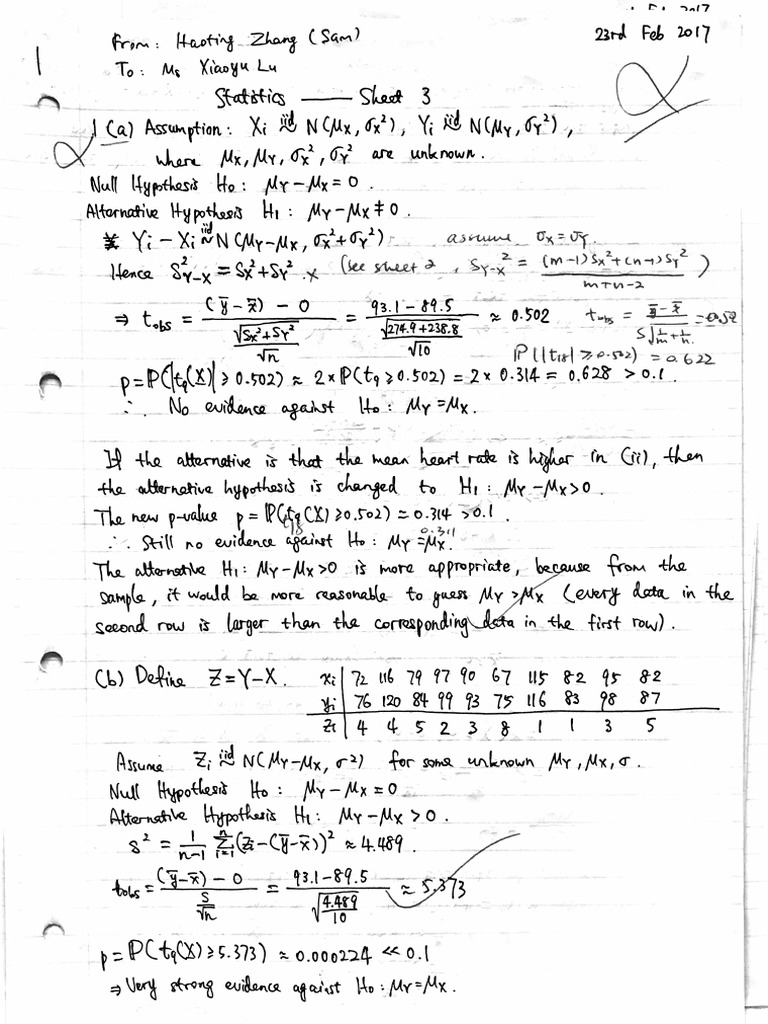 From: Haoting Zhang (Sam)
23rd Feb 2017
To: Ms Xiaoyu Lu
1
Statistics —— Sheet 3
α
1 (a) Assumption: Xi iid~ N(μX, σX²), Yi iid~ N(μY, σY²),
α
where μX, μY, σX², σY² are unknown.
Null Hypothesis H0: μY − μX = 0.
Alternative Hypothesis H1: μY − μX ≠ 0.
Yi − Xi iid~ N(μY − μX, σX² + σY²) assume σX = σY.
Hence S²Y−X = SX² + SY². x (see sheet 2, SY−X² = ((m−1)SX² + (n−1)SY²)/(m+n−2))
⇒ tobs = ((ȳ − x̄) − 0)/(√(SX² + SY²)/√n) = (93.1 − 89.5)/(√(274.9 + 238.8)/√10) ≈ 0.502 tobs = (ȳ − x̄)/(S√(1/m + 1/n)) =
P(|t18| ≥ 0.502) = 0.622
p = P(|t9(X)| ≥ 0.502) ≈ 2 × P(t9 ≥ 0.502) = 2 × 0.314 = 0.628 > 0.1.
∴ No evidence against H0: μY = μX.
If the alternative is that the mean heart rate is higher in (ii), then
the alternative hypothesis is changed to H1: μY − μX > 0.
The new p-value p = P(t9(X) ≥ 0.502) ≈ 0.314 > 0.1.
18 0.311
∴ Still no evidence against H0: μY = μX.
The alternative H1: μY − μX > 0 is more appropriate, because from the
sample, it would be more reasonable to guess μY > μX (every data in the
second row is larger than the corresponding data in the first row).
(b) Define Z = Y − X. xi | 72 116 79 97 90 67 115 82 95 82
yi | 76 120 84 99 93 75 116 83 98 87
zi | 4 4 5 2 3 8 1 1 3 5
Assume Zi iid~ N(μY − μX, σ²) for some unknown μY, μX, σ.
Null Hypothesis H0: μY − μX = 0
Alternative Hypothesis H1: μY − μX > 0.
s² = 1/(n−1) Σ_{i=1}^{n} (zi − (ȳ − x̄))² ≈ 4.489.
tobs = ((ȳ − x̄) − 0)/(s/√n) = (93.1 − 89.5)/√(4.489/10) ≈ 5.373
p = P(t9(X) ≥ 5.373) ≈ 0.000224 ≪ 0.1
⇒ Very strong evidence against H0: μY = μX.